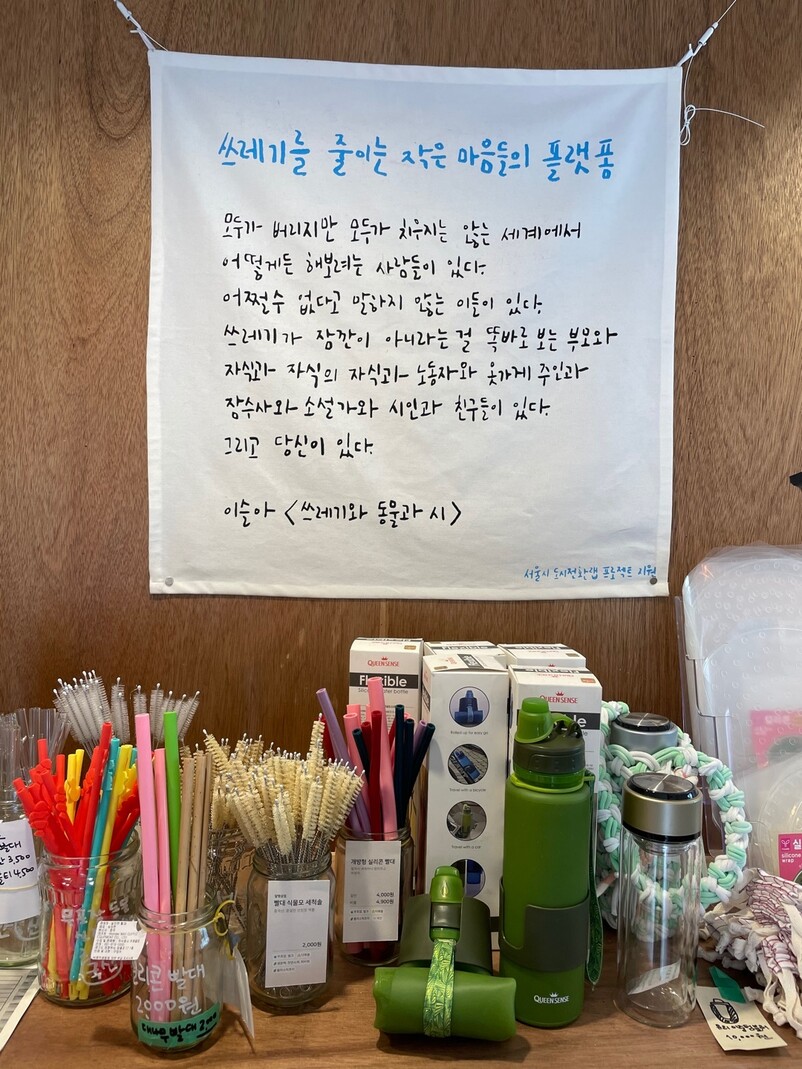 쓰레기를 줄이는 작은 마음들의 플랫폼
모두가 버리지만 모두가 치우지는 않는 세계에서
어떻게든 해보려는 사람들이 있다.
어쩔수 없다고 말하지 않는 이들이 있다.
쓰레기가 잠깐이 아니라는 걸 똑바로 보는 부모와
자식과 자식의 자식과 노동자와 옷가게 주인과
잠수사와 소설가와 시인과 친구들이 있다.
그리고 당신이 있다.
이슬아 <쓰레기와 동물과 시>
서울시 도시전환랩 프로젝트 지원
QUEEN SENSE
Flexible
Flexible
QUEEN SENSE
Flexible
QUEEN SENSE
Travel with a bicycle
3,500
4,500
실리콘 빨대
2000원
대나무 빨대 2000
빨대 식물모 세척솔
2,000원
개방형 실리콘 빨대
4,000원
4,900원
QUEEN SENSE
silicone
wrap
10,000원